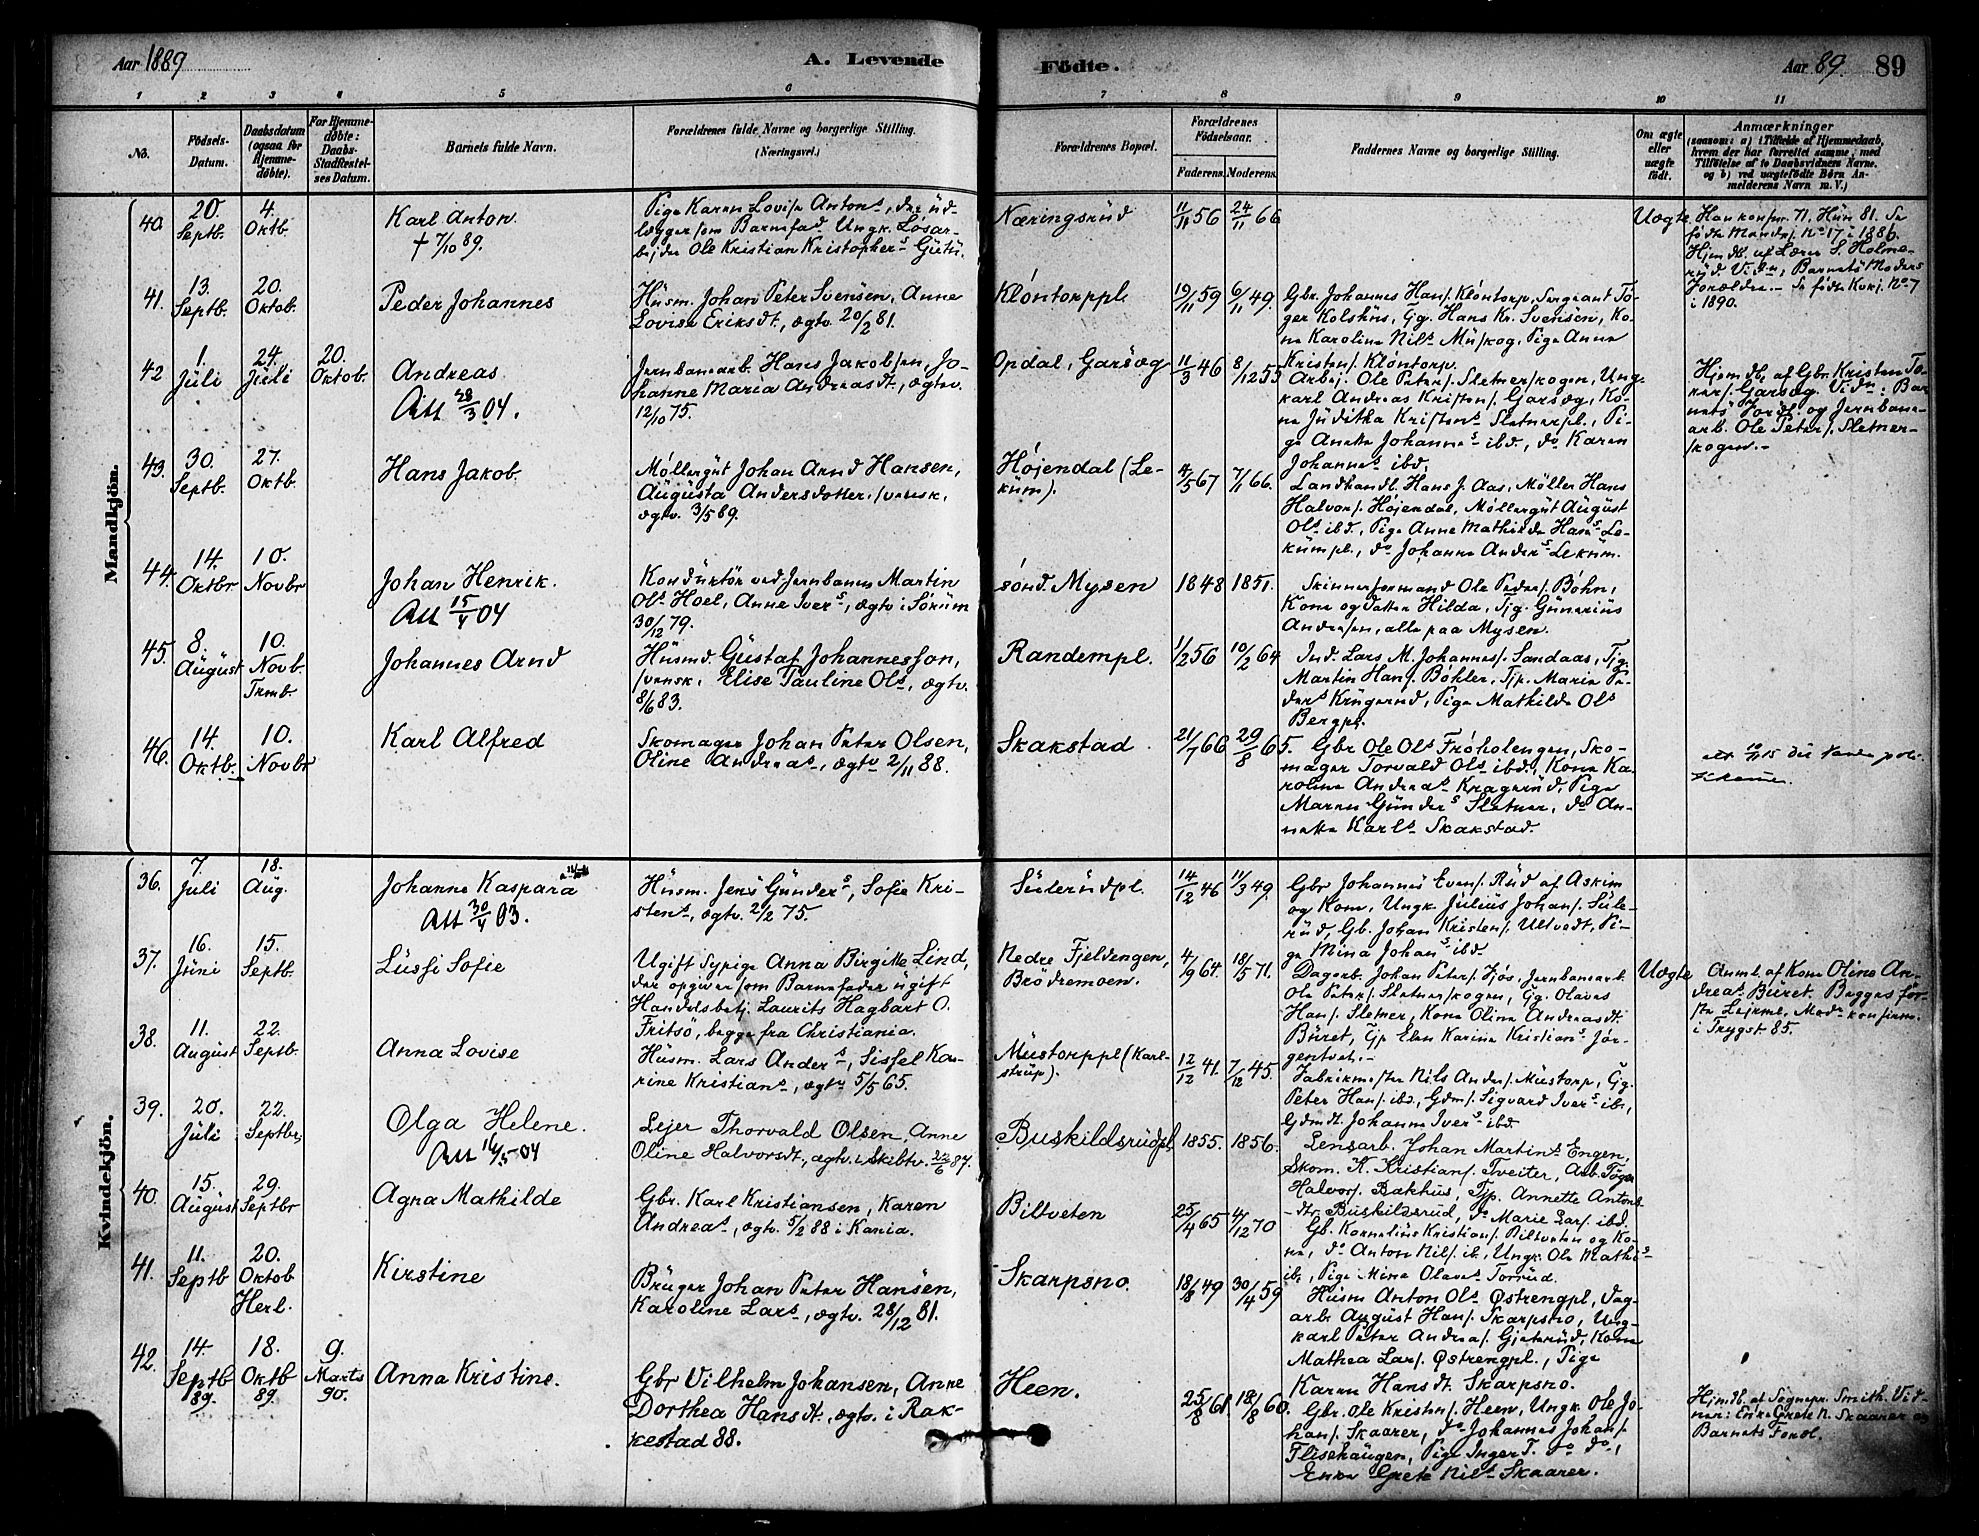 Aar 1889
A. Levende
Födte.
Aar 89.
89
1 2 3 4 5 6 7 8 9 10 11
No.
Födsels-Datum.
Daabsdatum (ogsaa for Hjemmedöbte).
For Hjemmedöbte: Daabs-Stadfæstelses Datum.
Barnets fulde Navn.
Forældrenes fulde Navne og borgerlige Stilling.
(Næringsvei.)
Forældrenes Bopæl.
Forældrenes Födselsaar.
Faderens. Moderens.
Faddernes Navne og borgerlige Stilling.
Om ægte eller uægte födt.
Anmærkninger
(saasom: a) i Tilfælde af Hjemmedaab, hvem der har forrettet samme, med Tilföielse af to Daabsvidners Navne, og b) ved uægtefödte Börn Anmelderens Navn m. V.)
Mandkjön.
40. 20. Septb. 4. Oktb.
Karl Anton
† 7/10 89.
Pige Karen Lovise Antons, der ud-
lægger som Barnefad. Ungk. Løsar-
bejder Ole Kristian Kristophers Gutu.
Næringsrud
11/11 56 24/11 66
Uægte
Han konfirm. 71. Hun 81. Se
fødte Mandkj. No 17 i 1886.
Hjemdb. af Lærer S. Holme-
rud. Vidn, Barnets Moders
Forældre. - Se fødte Kvkj. No 7
i 1890.
41. 13. Septb. 20. Oktob.
Peder Johannes
Husm. Johan Peter Svensen, Anne
Lovise Eriksdt., ægtv. 20/2 81.
Kløntorppl.
19/11 59 6/11 49.
Gbr. Johannes Hans. Kløntorp, Sergeant To-
ger Kolshus, Gg. Hans Kr. Svensen, Ko-
ne Karoline Nils Muskog, Pige Anna
Kristens. Kløntorp.
42 1. Juli 24. Juli 20. Oktob.
Andreas
Att 28/3 04.
Jernbanearb. Hans Jakobsen, Jo-
hanne Maria Andreasdt., ægtv.
12/10 75.
Opdal, Garsæg
11/3 46 8/12 53
Arbej. Ole Peters. Sletnerskogen, Ung-
karl Andreas Kristens. Garsæg, Ko-
ne Juditha Kristens Sletnerpl., Pi-
ge Anette Johannes ibd., do Karen
Johannes ibd.
Hjemdb. af Gbr. Kristen To-
kers. Garsæg. Vidn: Bar-
nets Foræl. og Jernbane-
arb. Ole Peters. Sletner-
skogen.-
43. 30. Septb. 27. Oktb.
Hans Jakob
Møllergut Johan Arnd Hansen,
Augusta Andersdotter, svensk,
ægtv. 3/5 89.
Højendal (Le-
kum).
4/5 67 7/1 66.
Landhandl. Hans J. Aas, Møller Hans
Halvors. Højendal, Møllergut August
Ols ibd., Pige Anne Mathilde Hans Le-
kumpl., do Johanne Anders Lekum.
44. 14. Oktbr 10. Novbr
Johan Henrik.
Att 15/4 04
Konduktør ved Jernbanen Martin
Ols Hoel, Anne Ivers, ægtv i Sørum
30/12 79.
sønd. Mysen
1848 1851.
Skinneformand Ole Peders. Bøhn,
Kone og Datter Hilda, Tjg. Gunerius
Andresen, alle paa Mysen.
45. 8. August 10. Novb. Trmb.
Johannes Arnd
Husmd. Gustaf Johannesson,
svensk, Elise Pauline Ols, ægtv.
8/6 83.
Randempl.
1/2 56 10/2 64
Ind. Lars M. Johannes. Sandaas, Tjg.
Martin Hans. Bøhler, Tjp. Marie Pe-
ders Krugerud, Pige Mathilde Ols
Bergpl.
46. 14. Oktb. 10. Novbr
Karl Alfred
Skomager Johan Peter Olsen,
Oline Andreas, ægtv 2/11 88.
Skakstad.
21/7 66 29/8 65.
Gbr Ole Ols Frøholengen, Sko-
mager Torvald Ols ibd., Kone Ka-
roline Andreas Kragerud, Pige
Maren Gunders Sletner, do An-
nette Karls Skakstad.
Kvindekjön.
36. 7. Juli 18. Aug.
Johanne Kaspara
Att 30/4 03.
Husm. Jens Gunders, Sofie Kri-
stens, ægtv. 2/2 75.
Sulerudpl.
14/12 46 11/3 49.
Gbr Johannes Evens. Rud af Askim
og Kone, Ungk. Julius Johans. Sule-
rud, Gb. Johan Kristens. Ultvedt, Pi-
ge Mina Johans ibd.
37. 16. Juni 15. Septb.
Lussi Sofie
Ugift Sypige Anna Birgitte Lind,
der opgiver som Barnefader ugift
Handelsbetj. Laurits Hagbart O.
Fritsö, begge fra Christiania.
Nedre Fjeldengen,
Brödremoen.
4/9 64. 18/5 71.
Dagarb. Johan Peters. Fjös, Jernbanearb.
Ole Peters. Sletnerskogen, Gg. Olaves
Hans. Sletner, Kone Oline Andreasdt.
Buret, Gp Elen Karine Kristians Jör-
gentvet.-
Uægte
Anm. af Kone Oline An-
dreas Buret. Begges för-
ste Lejrml. Modr konfirm.
i Trygst. 85.
38. 11. August 22. Septb.
Anna Lovise
Husm. Lars Anders, Sissel Ka-
rine Kristians, ægtv 5/5 65.
Mustorppl (Karl-
strup).
12/12 41. 7/12 45.
Fabrikmester Nils Anders. Mustorp, Gg.
Peter Hans. ibd., Gdms. Sigvard Ivers ib.,
Gdmdt. Johanne Ivers ibd.
39. 20. Juli 22. Septbr
Olga Helene.
Att 16/5 04
Lejer Thorvald Olsen, Anne
Oline Halvorsdt., ægtv. i Skibtv. 22/6 87.
Buskildsrudpl
1855. 1856.
Lensarb. Johan Martins Engen,
Skom. K. Kristians. Tveiter, Arb. Töger
Halvors. Bakhus, Tjp. Annette Antons-
dtr Buskildsrud, do Marie Lars. ibd.
40. 15. August 29. Septbr
Agna Mathilde
Gbr. Karl Kristiansen, Karen
Andreas, ægtv. 5/2 88 i Kania.
Biltveten
25/4 65 4/12 70
Gb. Kornelius Kristians. Biltveten og Ko-
ne, do Anton Nils. ib., Ungk. Ole Mathis
ib., Pige Mina Olaves Torrud.
41. 11. Septb 20. Oktob Herl.
Kirstine
Bruger Johan Peter Hansen,
Karoline Lars, ægtv. 28/12 81.
Skarpsno.
18/8 49 30/4 59
Husm Anton Ols Østrengpl, Dag-
arb. August Hans. Skarpsno, Ung-
karl Peter Andreas. Gjeterud, Kone
Mathea Lars. Østrengpl., Pige
Karen Hansdt. Skarpsno.
42. 14. Septb 89. 18. Oktb 89. 9. Marts 90.
Anna Kristine.
Gbr Vilhelm Johansen, Anne
Dorthea Hansdt., ægtv. i Rak-
kestad 88.
Heen.
25/8 61. 18/8 60.
Gbr. Ole Kristens. Heen, Ungk. Ole Jo-
hans. Skaarer, do Johannes Johans.
Flisehaugen, Pige Inger T. do do,
Enke Grete Nils Skaarer.
Hjmdb. af Sognepr. Smith. Vid-
ner: Enke Grete N. Skaarer og
Barnets Foræl.